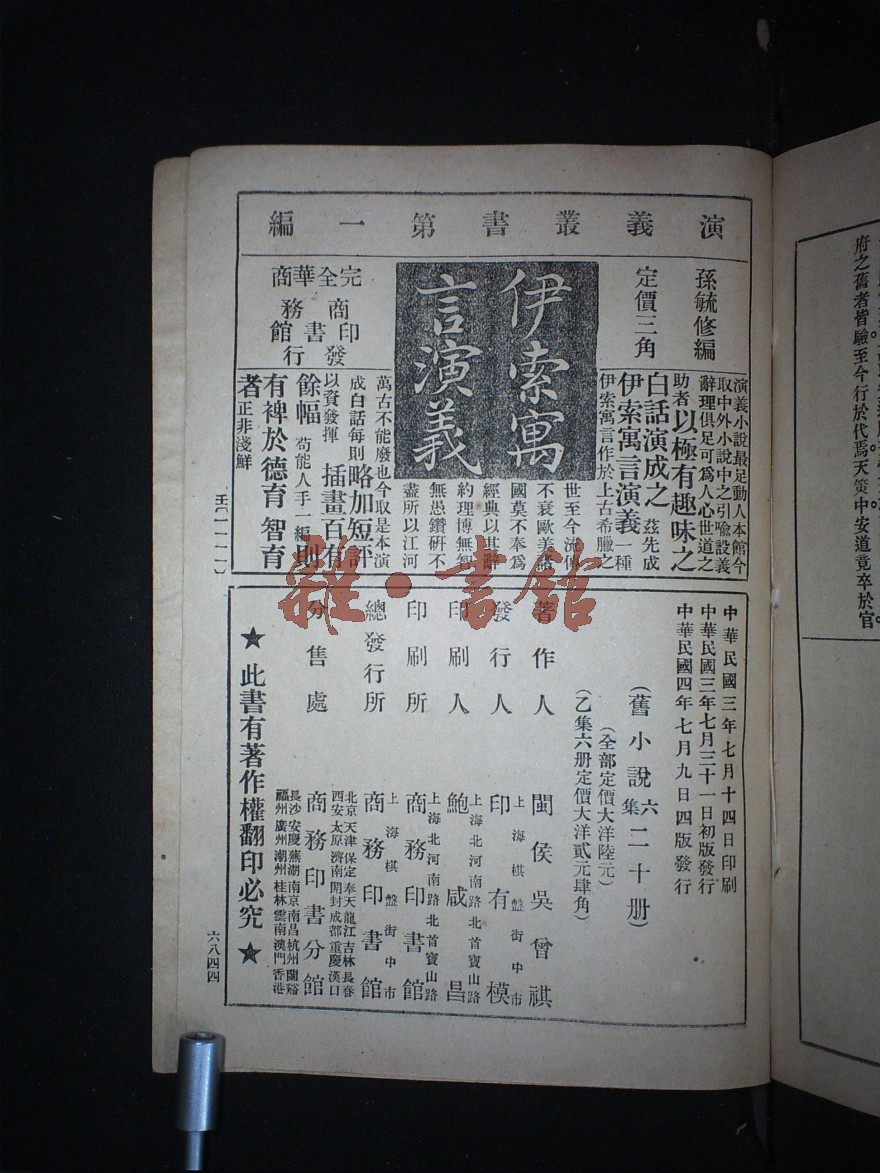 演義叢書第一編
孫毓修編
定價三角
伊索寓
言演義
完全華商
商務印書館
發行
演義小說最足動人本館今
取中外小說中之引喻設義
辭理俱足可爲人心世道之
助者以極有趣味之
白話演成之茲先成
伊索寓言演義一種
伊索寓言作於上古希臘之
世至今流傳
不衰歐美諸
國莫不奉爲
經典以其辭
約理博無智
無愚鑽研不
盡所以江河
萬古不能廢也今取是本演
成白話每則略加短評
以資發揮插畫百有
餘幅苟能人手一編則
有裨於德育智育
者正非淺鮮
中華民國三年七月十四日印刷
中華民國三年七月三十一日初版發行
中華民國四年七月九日四版發行
(舊小說六集二十册)
(全部定價大洋陸元)
(乙集六册定價大洋貳元肆角)
著作人 閩侯吳曾祺
發行人 上海棋盤街中市 印有模
印刷人 上海北河南路北首寶山路 鮑咸昌
印刷所 上海北河南路北首寶山路 商務印書館
總發行所 上海棋盤街中市 商務印書館
分售處 北京天津保定奉天龍江吉林長春
西安太原濟南開封成都重慶漢口
商務印書分館
長沙安慶蕪湖南京南昌杭州蘭谿
福州廣州潮州桂林雲南澳門香港
★此書有著作權翻印必究★
六八四四
府之舊者皆驗至今行於代焉天策中安道竟卒於官
雜·書館